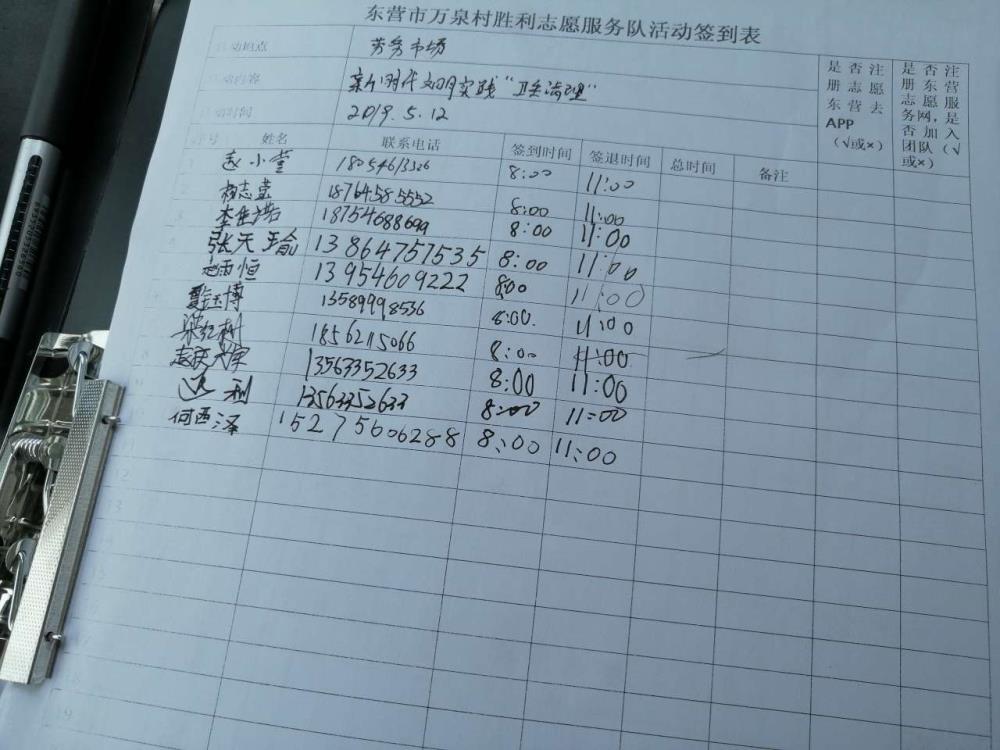 东营市万泉村胜利志愿服务队活动签到表
活动地点 劳务市场
活动内容 新时代文明实践“卫生清理”
活动时间 2019.5.12
是否注册志愿东营去APP（√或×）
是否注册东营志愿服务网，是否加入团队（√或×）
序号 姓名 联系电话 签到时间 签退时间 总时间 备注
赵小萱 8:00 11:00
18764585552 8:00 11:00
18754688699 8:00 11:00
张天 13864757535 8:00 11:00
赵雨恒 13954609222 8:00 11:00
博 13589998536 8:00. 11:00
梁红树 18562115066 8:00 11:00
13563352633 8:00 11:00
利 13563352633 8:00 11:00
何西泽 15275606288 8:00 11:00
12
13
19